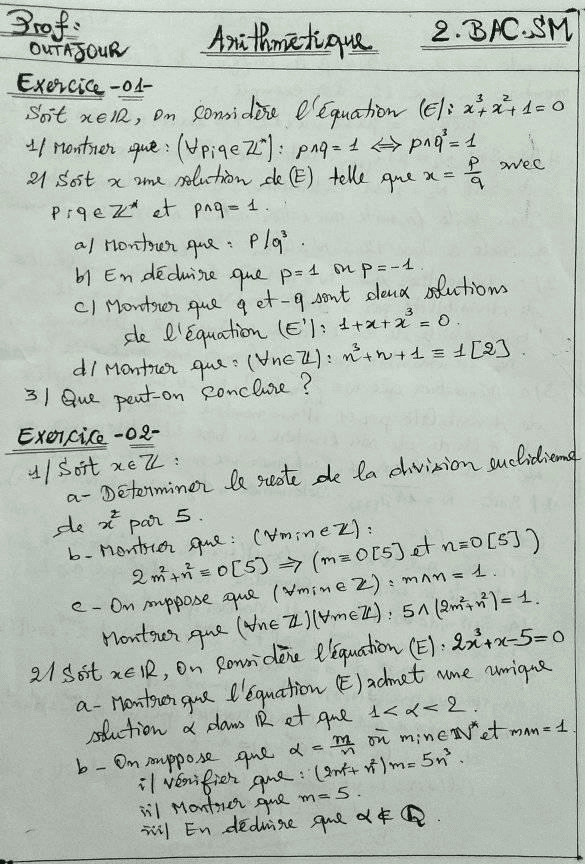 Prof: OUTAJOUR
Arithmétique
2.BAC.SM
Exercice -01-
Soit x∈ℝ, on considère l'équation (E): x³+x²+1=0
1/ Montrer que: (∀p;q∈ℤ*): p∧q=1 ⟺ p∧q³=1
2/ Soit x une solution de (E) telle que x = p/q avec
p;q∈ℤ* et p∧q=1.
a/ Montrer que: p/q³.
b/ En déduire que p=1 ou p=-1.
c/ Montrer que q et -q sont deux solutions
de l'équation (E'): 1+x+x³=0.
d/ Montrer que: (∀n∈ℤ): n³+n+1≡1[2].
3/ Que peut-on conclure ?
Exercice -02-
1/ Soit x∈ℤ:
a- Déterminer le reste de la division euclidienne
de x² par 5.
b- Montrer que: (∀m;n∈ℤ):
2m²+n²≡0[5] ⟹ (m≡0[5] et n≡0[5])
c- On suppose que (∀m;n∈ℤ): m∧n=1.
Montrer que (∀n∈ℤ)(∀m∈ℤ): 5∧(2m²+n²)=1.
2/ Soit x∈ℝ, On considère l'équation (E): 2x³+x-5=0
a- Montrer que l'équation (E) admet une unique
solution α dans ℝ et que 1<α<2.
b- On suppose que α = m/n où m;n∈ℕ* et m∧n=1
i/ Vérifier que: (2m²+n²)m=5n³.
ii/ Montrer que m=5.
iii/ En déduire que α∉ℚ.